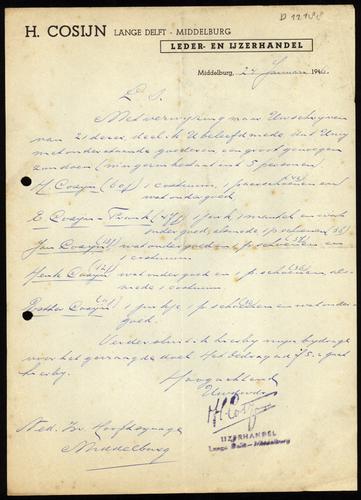 D 12188
H. COSIJN LANGE DELFT - MIDDELBURG
LEDER- EN IJZERHANDEL
Middelburg, 27 Januari 194
L. S.
Met verwijzing naar Uw schrijven
van 21 dezer, deel ik U beleefd mede dat Uwij
met onderstaande goederen een groot genoegen
zoudt doen (mijn gezin bestaat uit 5 personen
H Cosijn 1 costuum, 1 paar schoenen en
wat ondergoed
E. Cosijn - 1 jurk 1 mantel en wat
ondergoed, alsmede 1 p. schoenen (36)
Jan Cosijn wat ondergoed en 1 p. schoenen en
1 costuum.
Henk Cosijn wat ondergoed en 1 p. schoenen als
mede 1 costuum.
Esther Cosijn 1 jurkje 1 p. schoenen en wat onder-
goed.
Verder sluit ik hierbij mijn bijdrage
voor het gevraagde doel. Het bedrag ad f 5.- gaat
hierbij.
Hoogachtend
H Cosijn
IJZERHANDEL
Lange Delft - Middelburg
Ned. Isr. Hoofdsynagoge
Middelburg